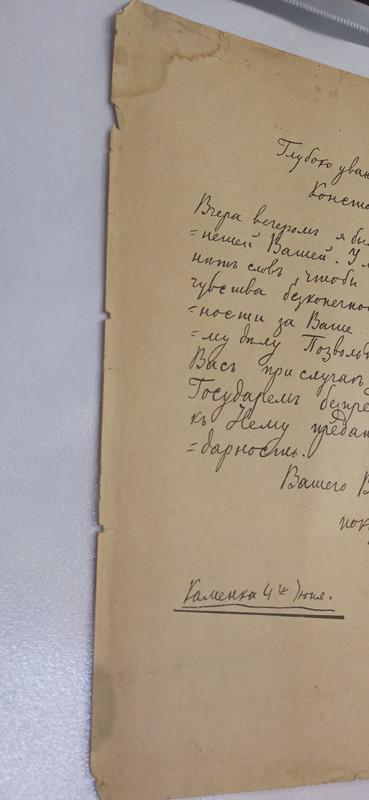 Глубоко уваж
Конста
Вчера вечеромъ я бы
=пешей Вашей. У м
нѣтъ словъ, чтобы
чувства безконечно
=ности за Ваше
=му дѣлу Позволь
Васъ при случаѣ
Государемъ безпре
къ Нему предан
=дарность.
Вашего В
пок
Каменка 4го Іюня.